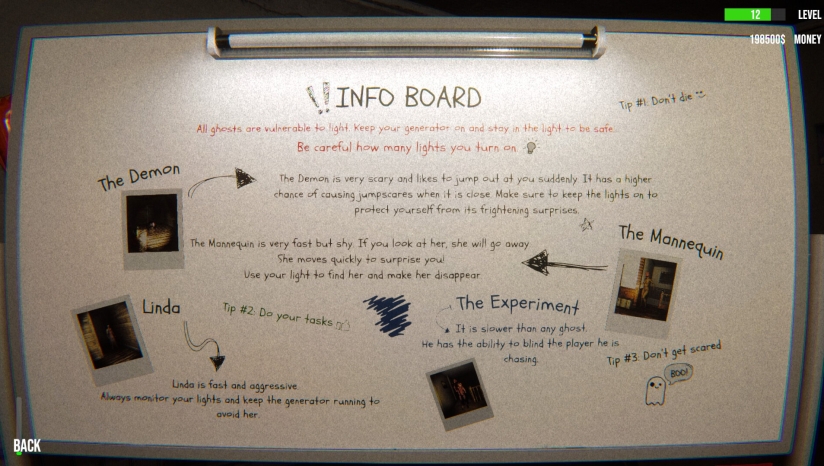 12 LEVEL
198500$ MONEY
!! INFO BOARD
Tip #1: Don't die
All ghosts are vulnerable to light. Keep your generator on and stay in the light to be safe.
Be careful how many lights you turn on
The Demon
The Demon is very scary and likes to jump out at you suddenly. It has a higher
chance of causing jumpscares when it is close. Make sure to keep the lights on to
protect yourself from its frightening surprises.
The Mannequin
The Mannequin is very fast but shy. If you look at her, she will go away.
She moves quickly to surprise you!
Use your light to find her and make her disappear
Linda
Tip #2: Do your tasks
The Experiment
It is slower than any ghost.
He has the ability to blind the player he is
chasing.
Tip #3: Don't get scared
BOO!
Linda is fast and aggressive.
Always monitor your lights and keep the generator running to
avoid her.
BACK